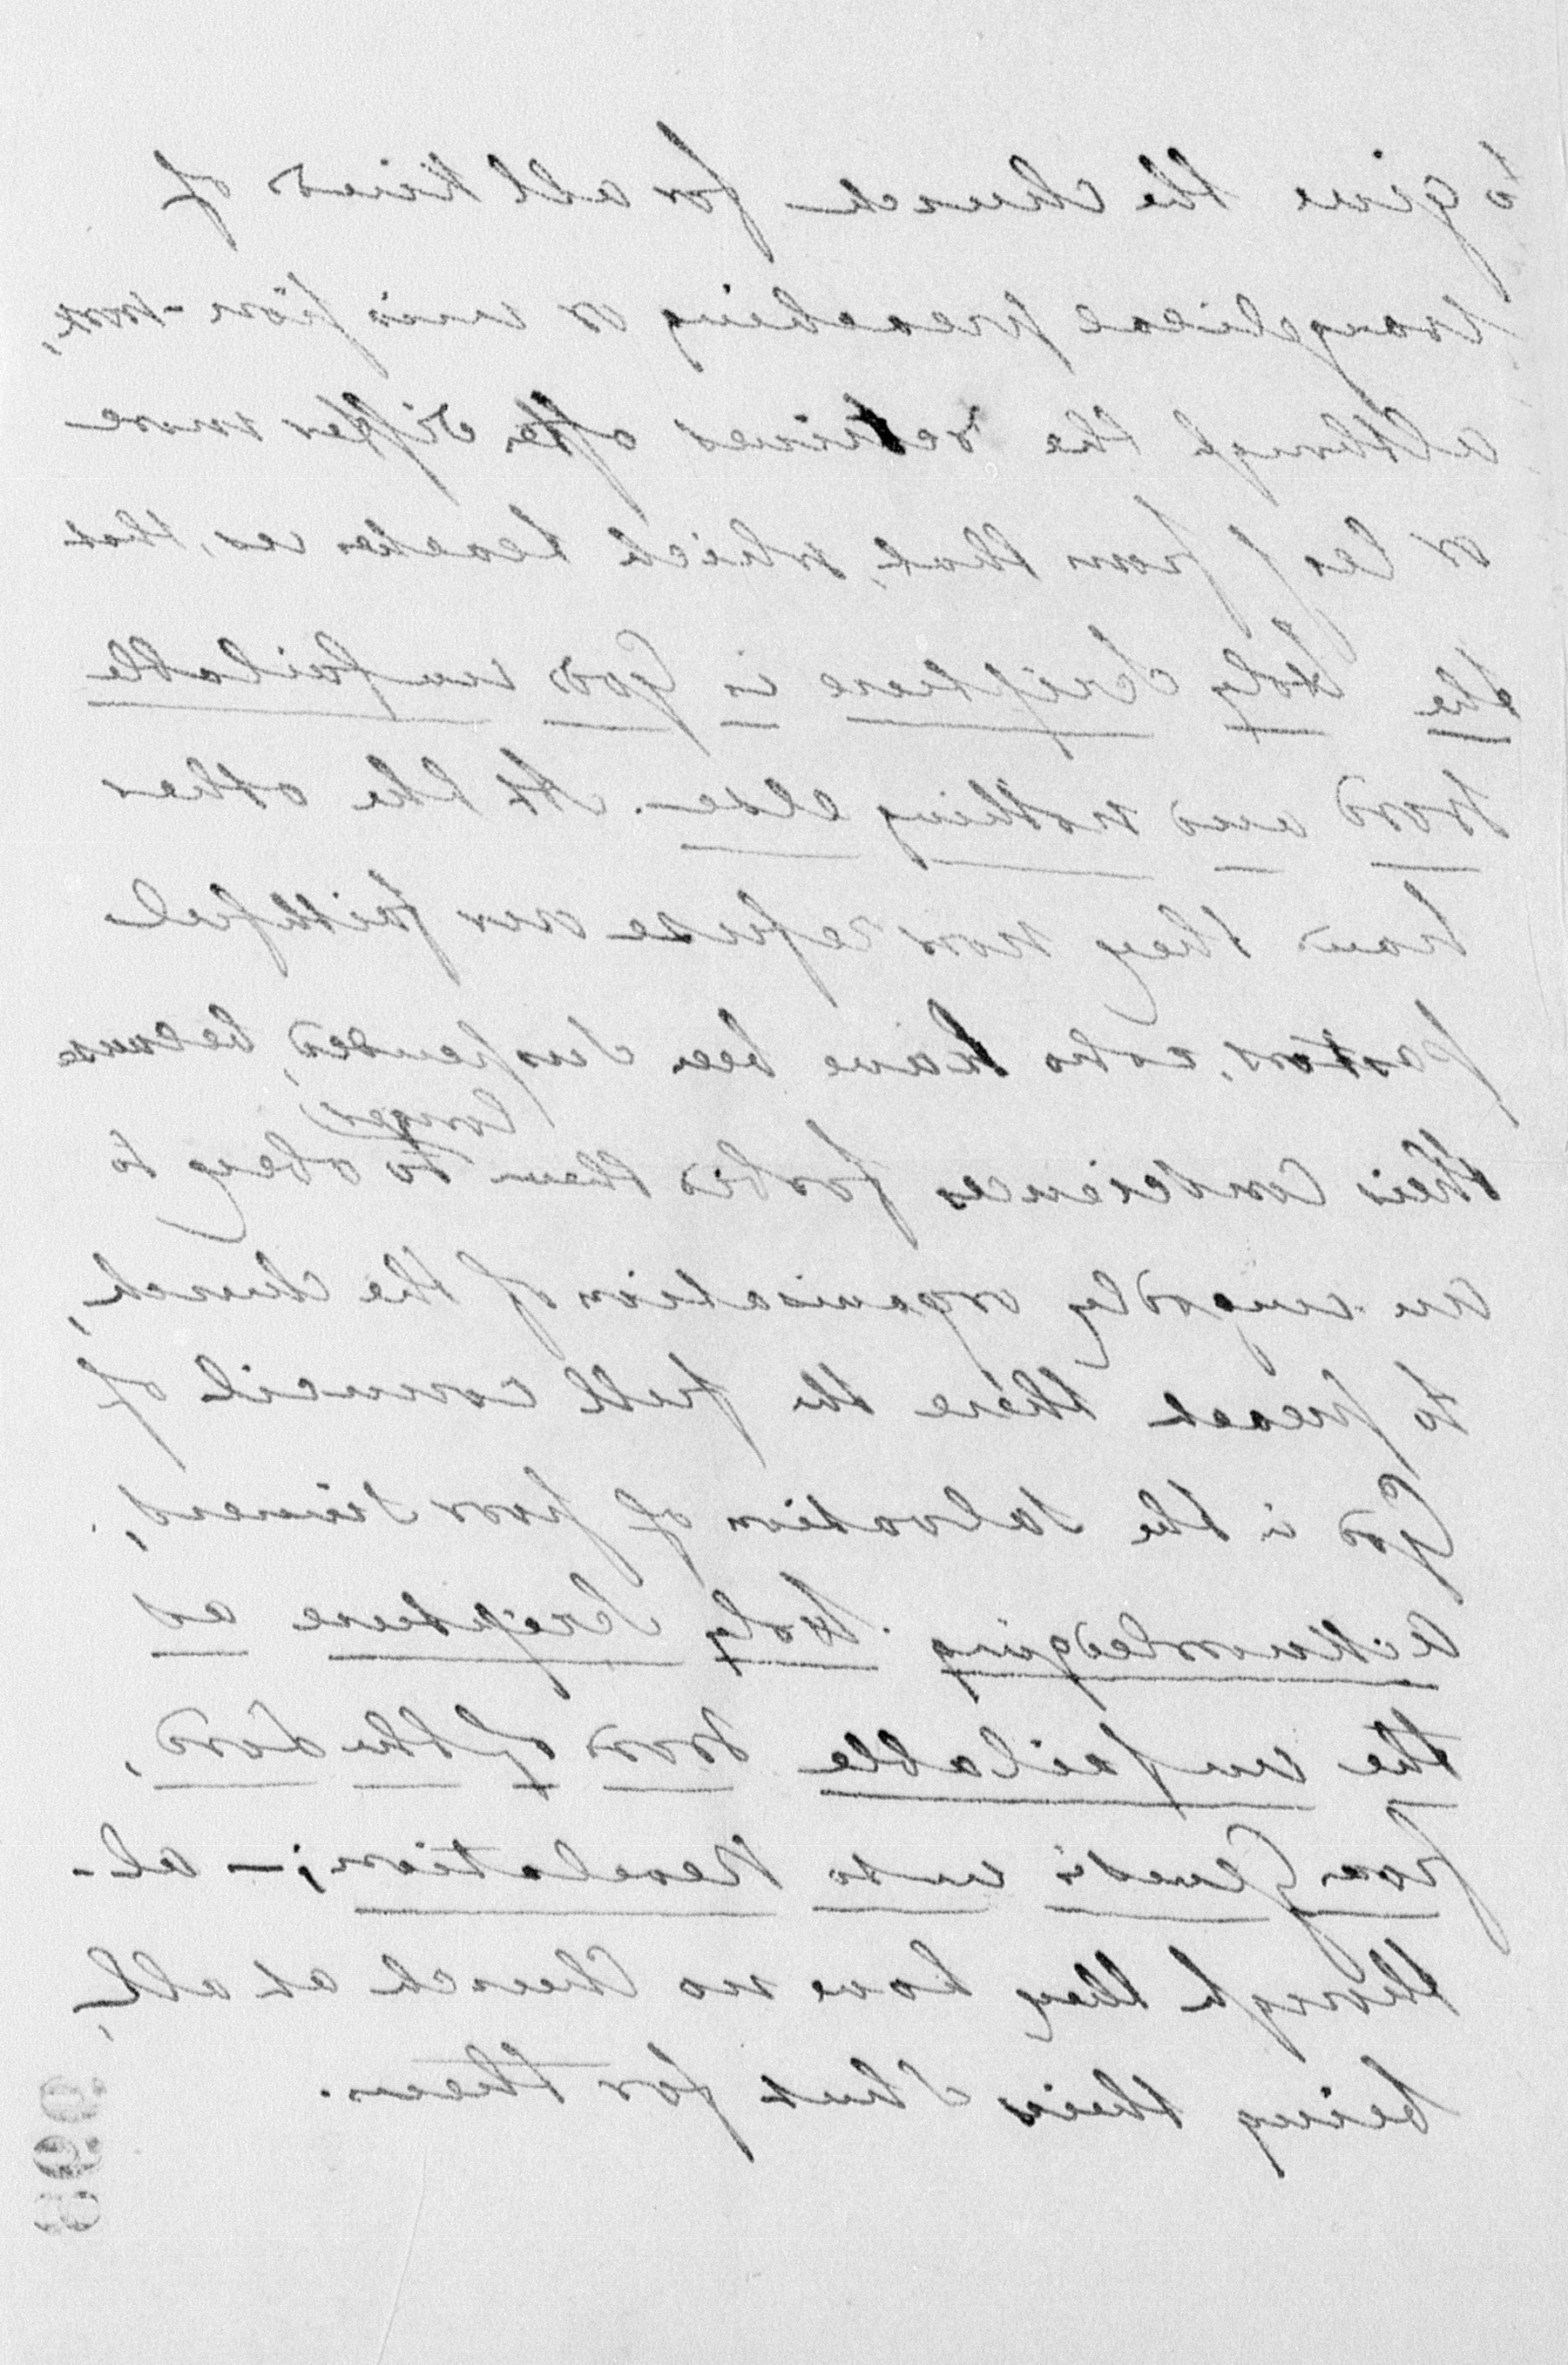 to give the church for all kind of
evangelical preaching or mission-work,
although the doctrines often differ more
or less from that, which teaches us, that
the Holy Scripture is God unfailable
word and nothing else. At the other
hand they now refuse our faithful
pastors, who have been suspended, because
longer
their consciences forbid them to obey to
an ungodly organisation of the church,
to preach there the full council of
God in the salvation of poor sinners,
acknowledging Holy Scripture as
the unfailable word of the Lord,
from Genesis unto Revelation; — al-
though they have no church at all,
being theirs shut for them.